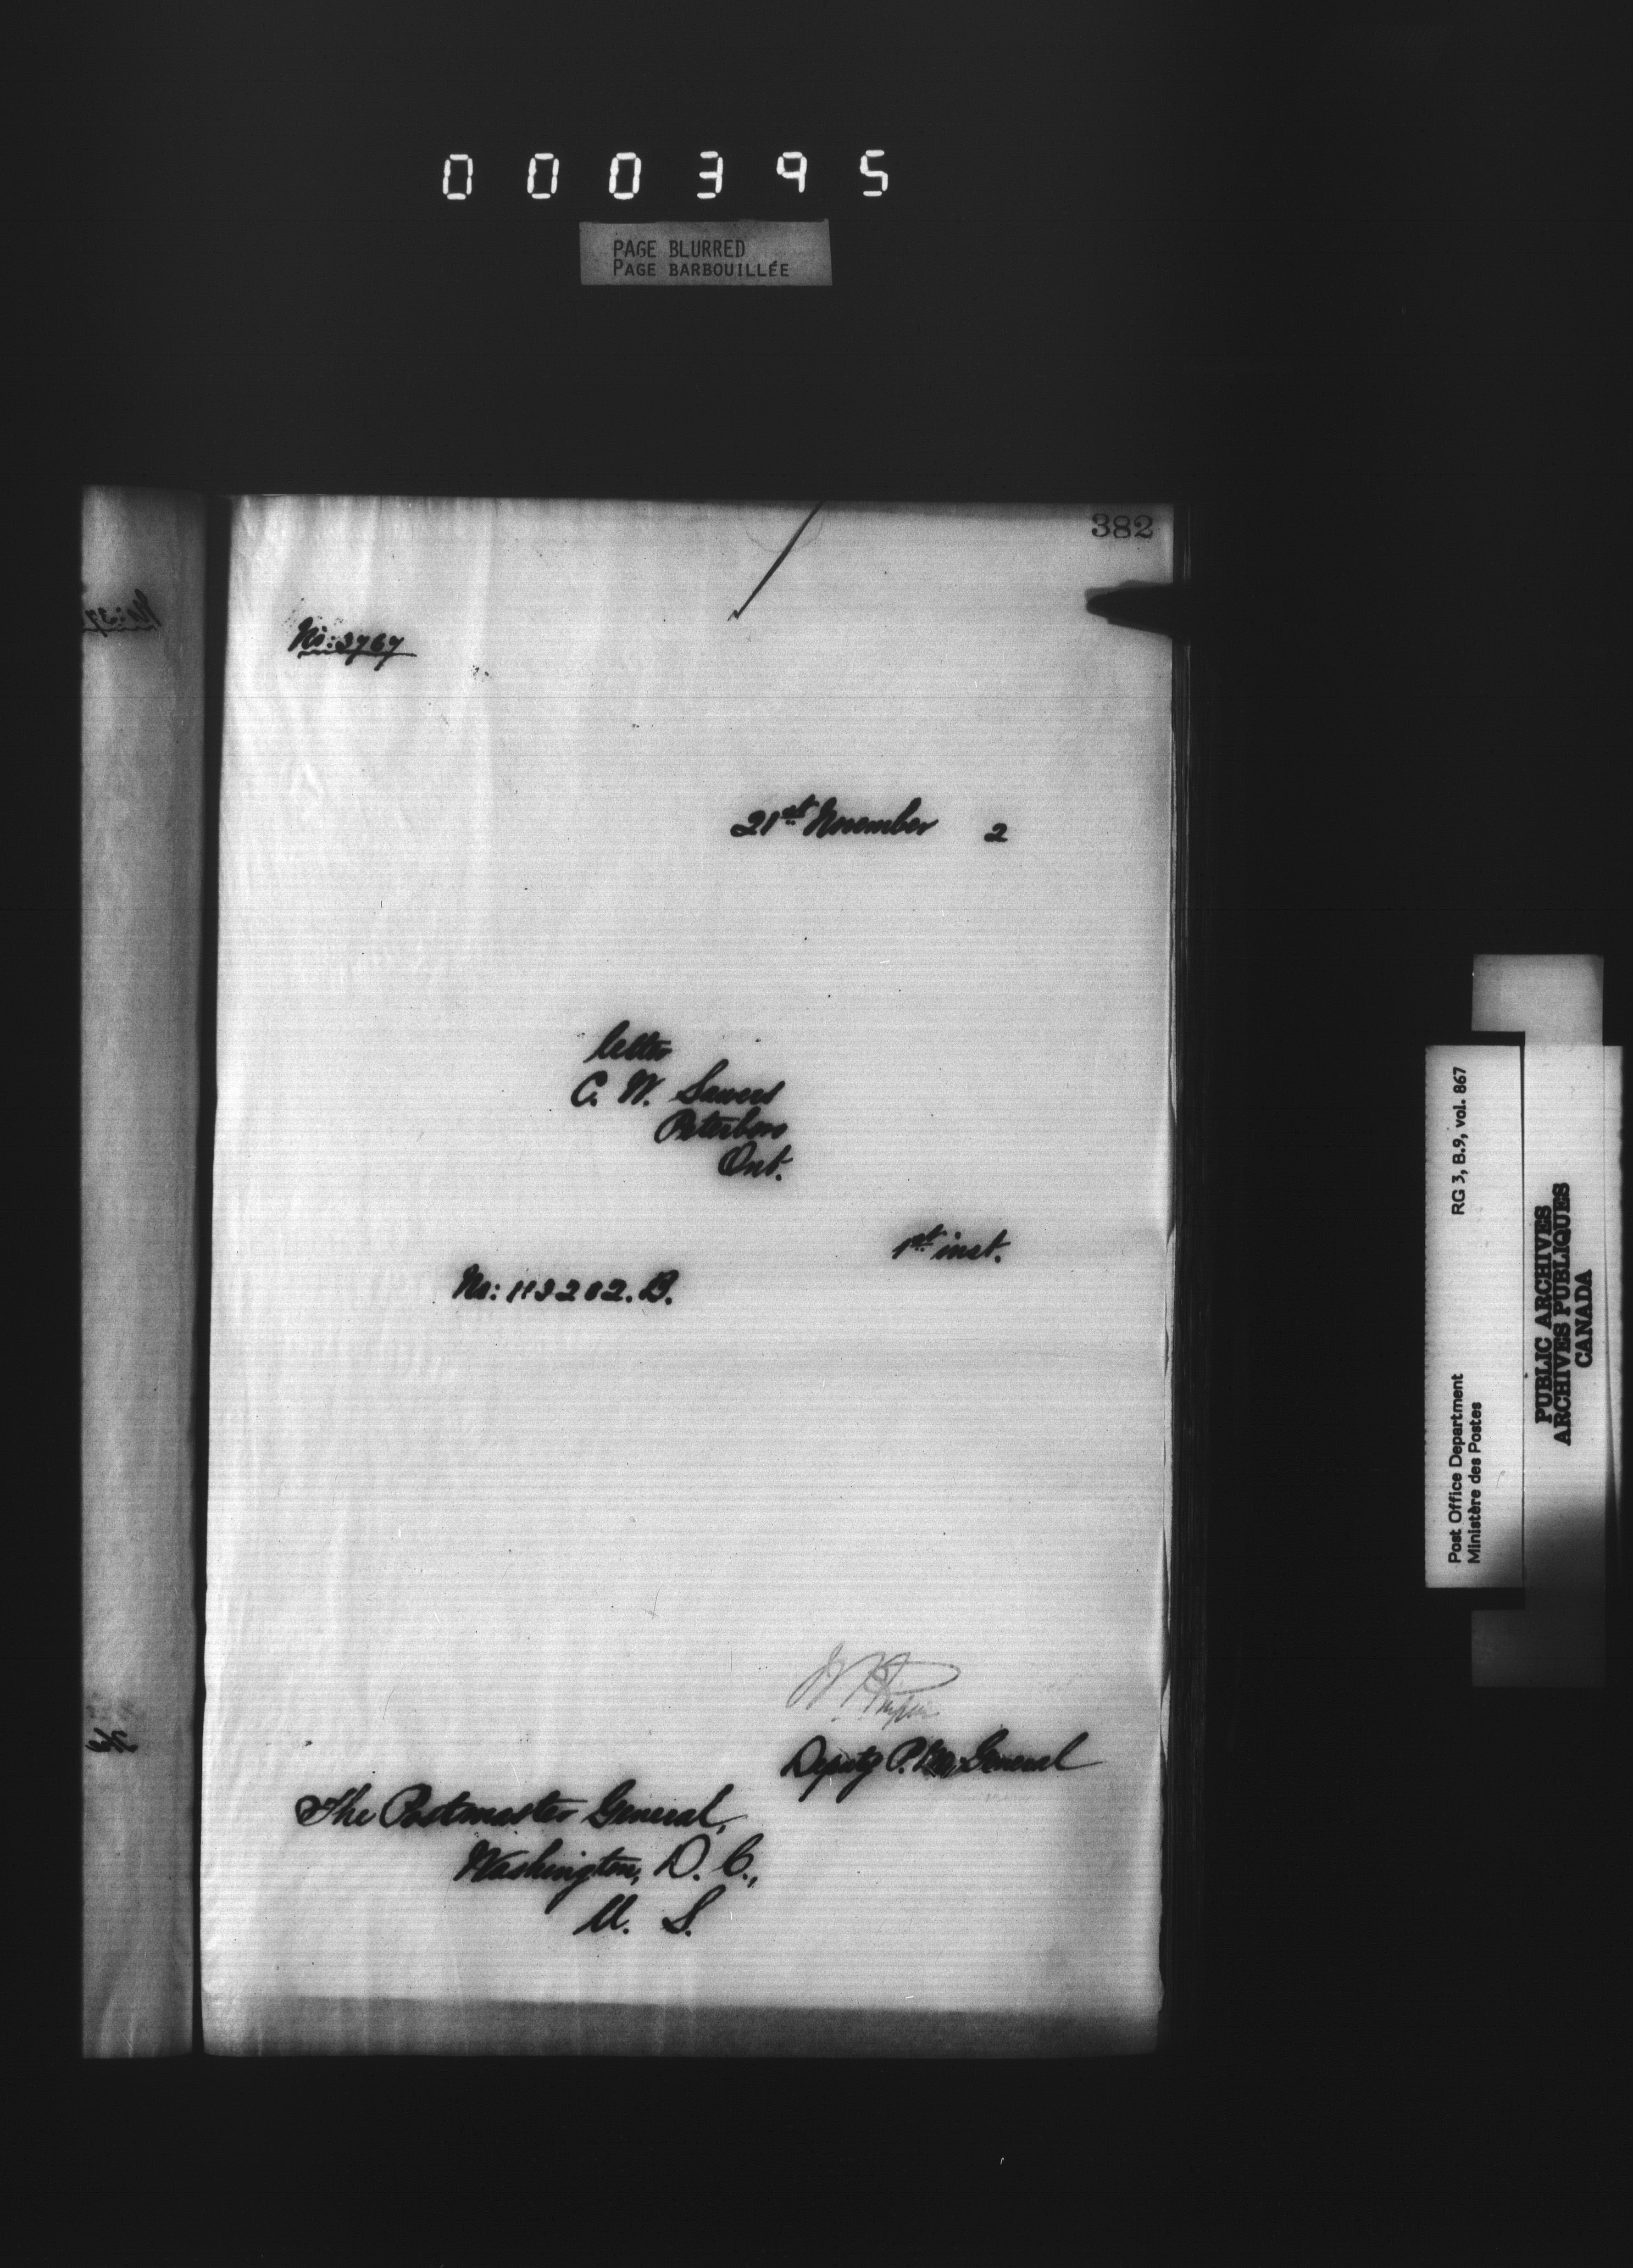 000395
PAGE BLURRED
PAGE BARBOUILLÉE
382
No: 3767
21st November 2
letter
C. W. Sawers
Peterboro
Ont.
1st inst.
No: 113202. B.
Deputy P. M. General
The Postmaster General,
Washington, D. C.,
U. S.
Post Office Department RG 3, B.9, vol. 867
Ministère des Postes
PUBLIC ARCHIVES
ARCHIVES PUBLIQUES
CANADA